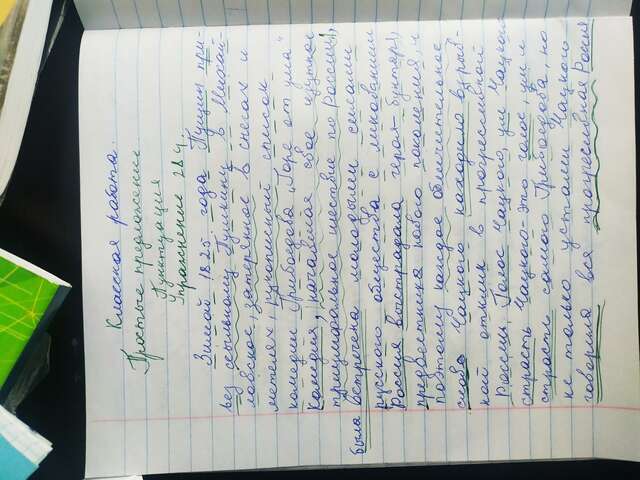 Классная работа.
Простые предложения.
Пунктуация
Упражнение 284.
Зимой 1825 года Пущин при-
вез ссыльному Пушкину в Михай-
ловское, затерянное в снегах и
метелях, рукописный список
комедии Грибоедова „Горе от ума"
Комедия, начавшая свое шумное
триумфальное шествие по России,
была встречена передовыми семьями
русского общества с ликованием
Россия выстрадала героя бунтаря,
предвестника нового поколения, и
поэтому каждое обличительное
слово Чацкого находило бурный
отклик в прогрессивной
России. Голос Чацкого, ум Чацкого
страсть Чацкого-это голос, ум и
страсть самого Грибоедова, но
не только устами Чацкого
говорила вся прогрессивная Россия